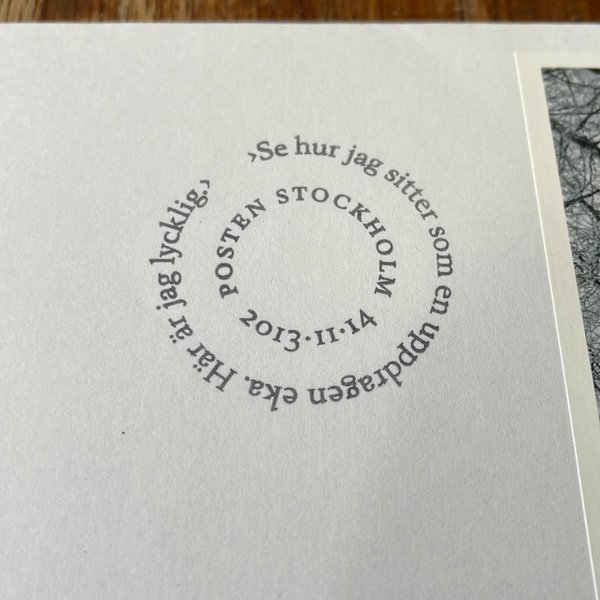 ›Se hur jag sitter som en uppdragen eka. Här är jag lycklig.›
POSTEN STOCKHOLM
2013·11·14